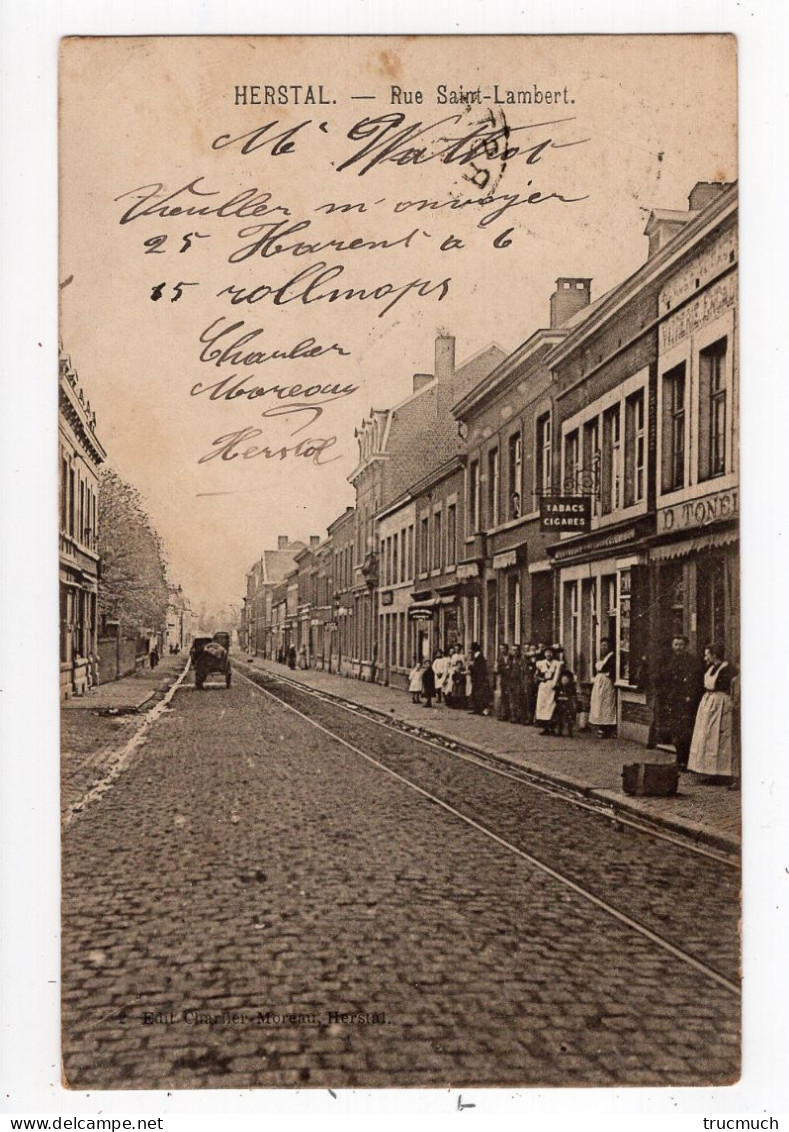 HERSTAL. — Rue Saint-Lambert.
Mr Wathot
Vieuller m'onvoyer
25 Harent a 6
15 rollmops
Charlier
Moreau
Herstal
TABACS
CIGARES
D. TONE
2 Edit Charlier-Moreau, Herstal.
trucmuch